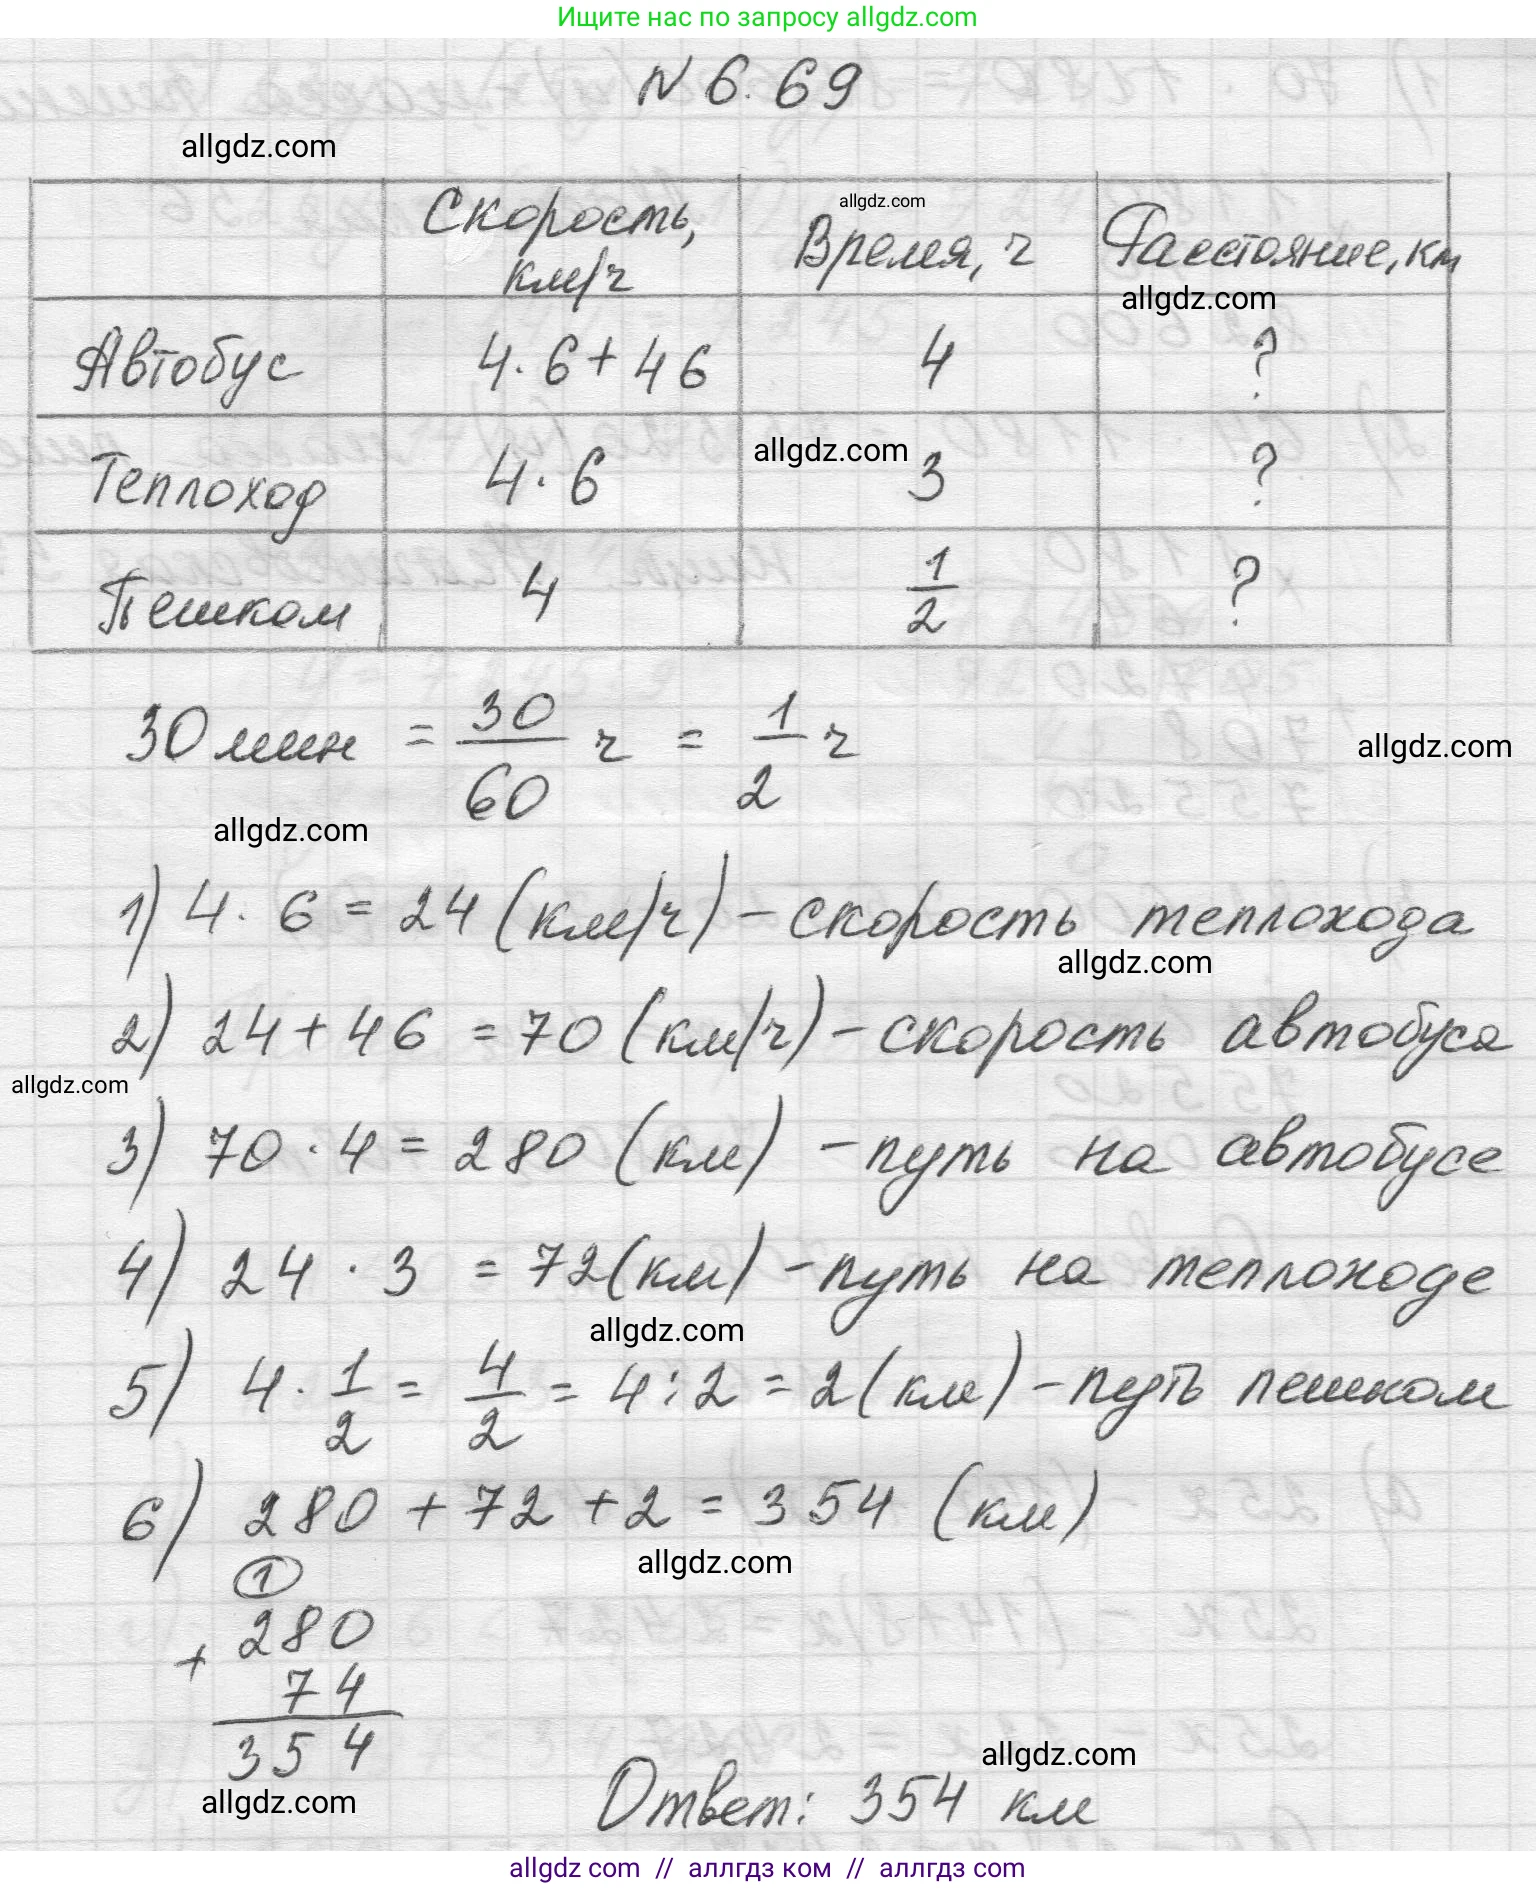 Ищите нас по запросу allgdz.com
N 6.69
allgdz.com
Скорость, км/ч
allgdz.com
Время, ч
Расстояние, км
allgdz.com
Автобус 4·6+46 4 ?
Теплоход 4·6 allgdz.com 3 ?
Пешком 4 1/2 ?
30 мин = 30/60 ч = 1/2 ч
allgdz.com
allgdz.com
1) 4·6 = 24 (км/ч) – скорость теплохода
allgdz.com
2) 24+46 = 70 (км/ч) – скорость автобуса
allgdz.com
3) 70·4 = 280 (км) – путь на автобусе
4) 24·3 = 72 (км) – путь на теплоходе
allgdz.com
5) 4·1/2 = 4/2 = 4:2 = 2 (км) – путь пешком
6) 280+72+2 = 354 (км)
allgdz.com
1
280
+
74
354
allgdz.com
allgdz.com
Ответ: 354 км
allgdz.com // аллгдз ком // аллгдз.com